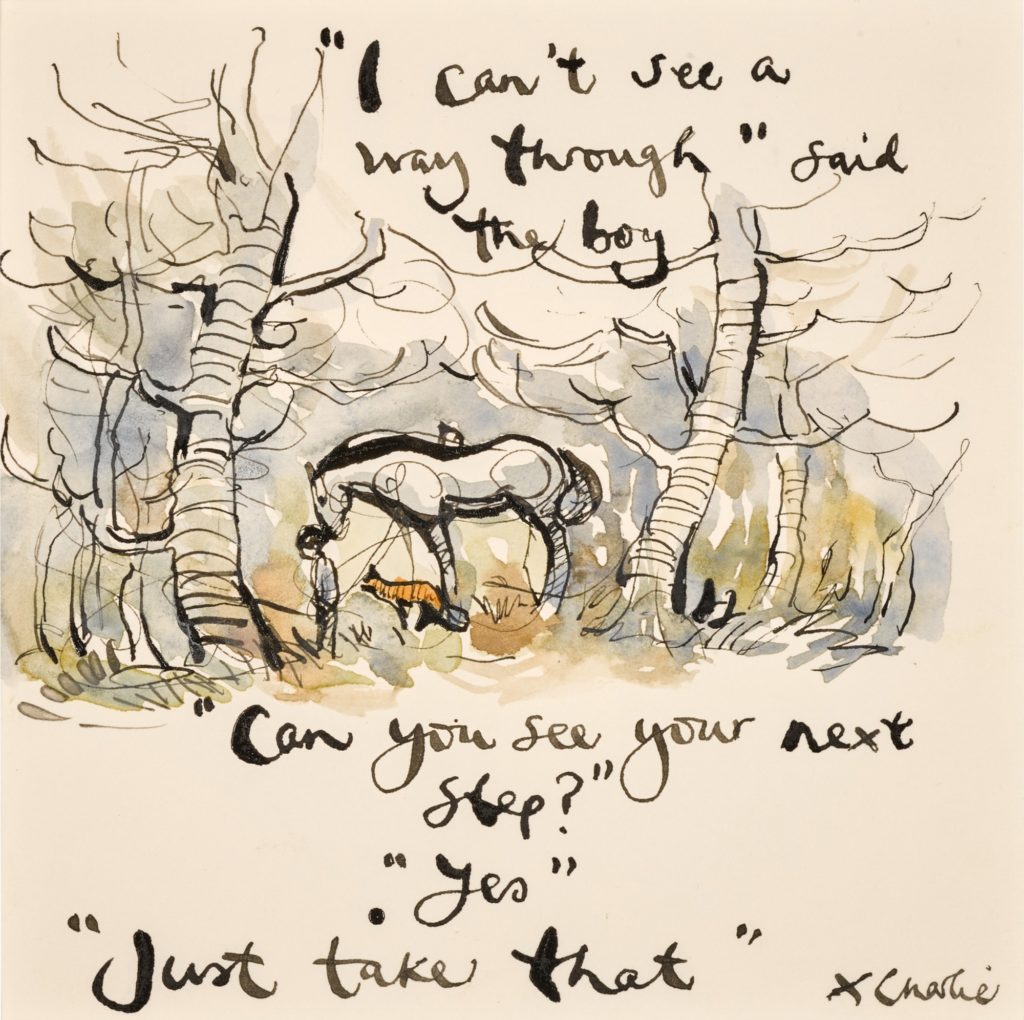 "I can't see a
way through" said
the boy
"Can you see your next
step?"
"Yes"
"Just take that"
x Charlie